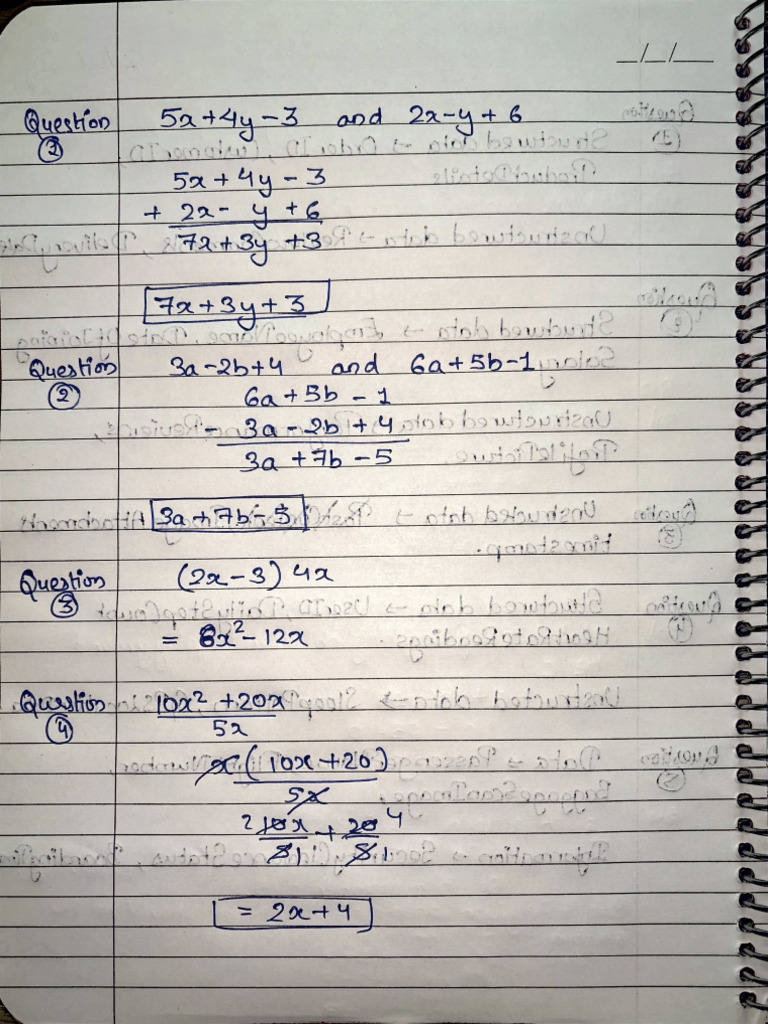 _/_/__
Question 5x+4y-3 and 2x-y+6
①
5x+4y-3
+ 2x- y+6
7x+3y+3
7x+3y+3
Question 3a-2b+4 and 6a+5b-1
②
6a+5b-1
- 3a-2b+4
3a+7b-5
3a+7b-5
Question (2x-3) 4x
③
= 8x²-12x
Question 10x²+20x
④ 5x
x(10x+20)
5x
2 10x + 20 4
5 1 5 1
= 2x+4